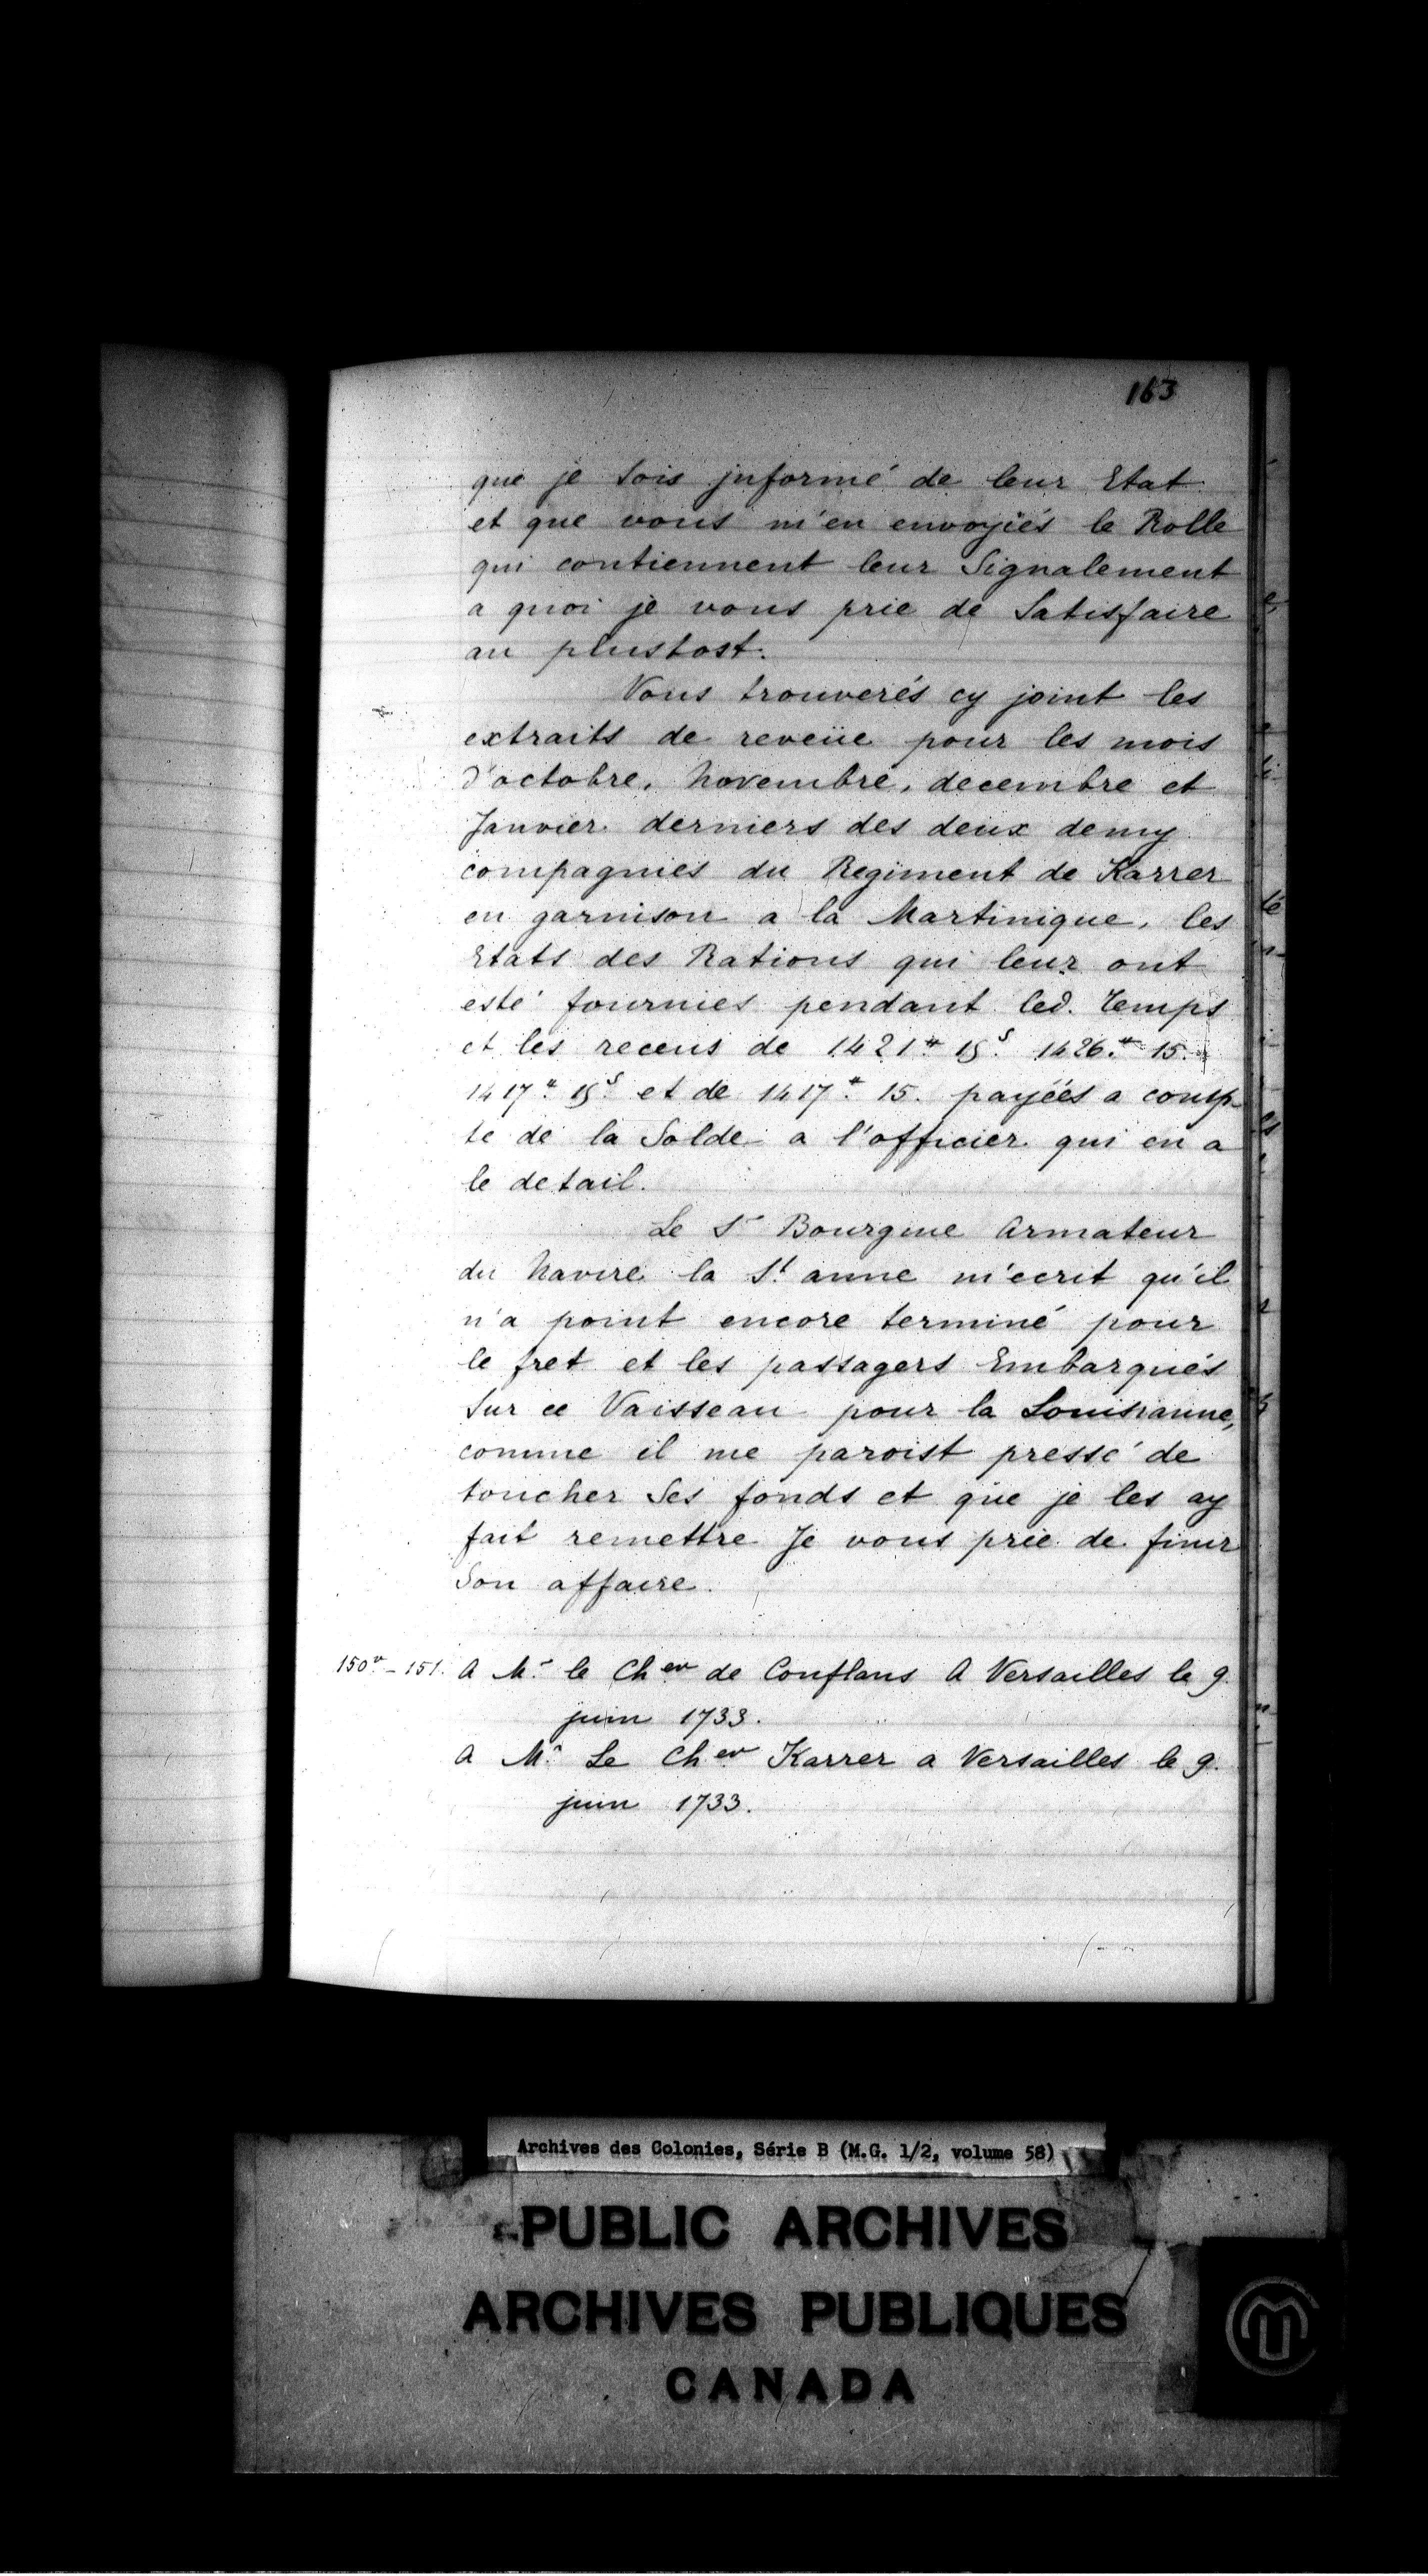 163
que je sois jnformé de leur Etat
et que vous m'en envoyiés le Rolle
qui contiennent leur Signalement
a quoi je vous prie de Satisfaire
au plustost.
Vous trouverés cy joint les
extraits de reveüe pour les mois
d'octobre, Novembre, decembre et
Janvier derniers des deux demy
compagnies du Regiment de Karrer
en garnison a la Martinique, les
Etats des Rations qui leur ont
esté fournies pendant led. Temps
et les receus de 1421# 15s. 1426.# 15.
1417# 15s et de 1417# 15. payées a comp-
te de la Solde a l'officier qui en a
le detail.
Le Sr Bourgine Armateur
du Navire la St. anne m'ecrit qu'il
n'a point encore terminé pour
le fret et les passagers Embarqués
Sur ce Vaisseau pour la Louisianne,
comme il me paroist pressé de
toucher Ses fonds et que je les ay
fait remettre Je vous prie de finir
Son affaire.
150v - 151. A Mr le Cher de Conflans A Versailles le 9.
juin 1733.
A Mr Le Cher Karrer a Versailles le 9.
juin 1733.
Archives des Colonies, Série B (M.G. 1/2, volume 58)
PUBLIC ARCHIVES
ARCHIVES PUBLIQUES
CANADA